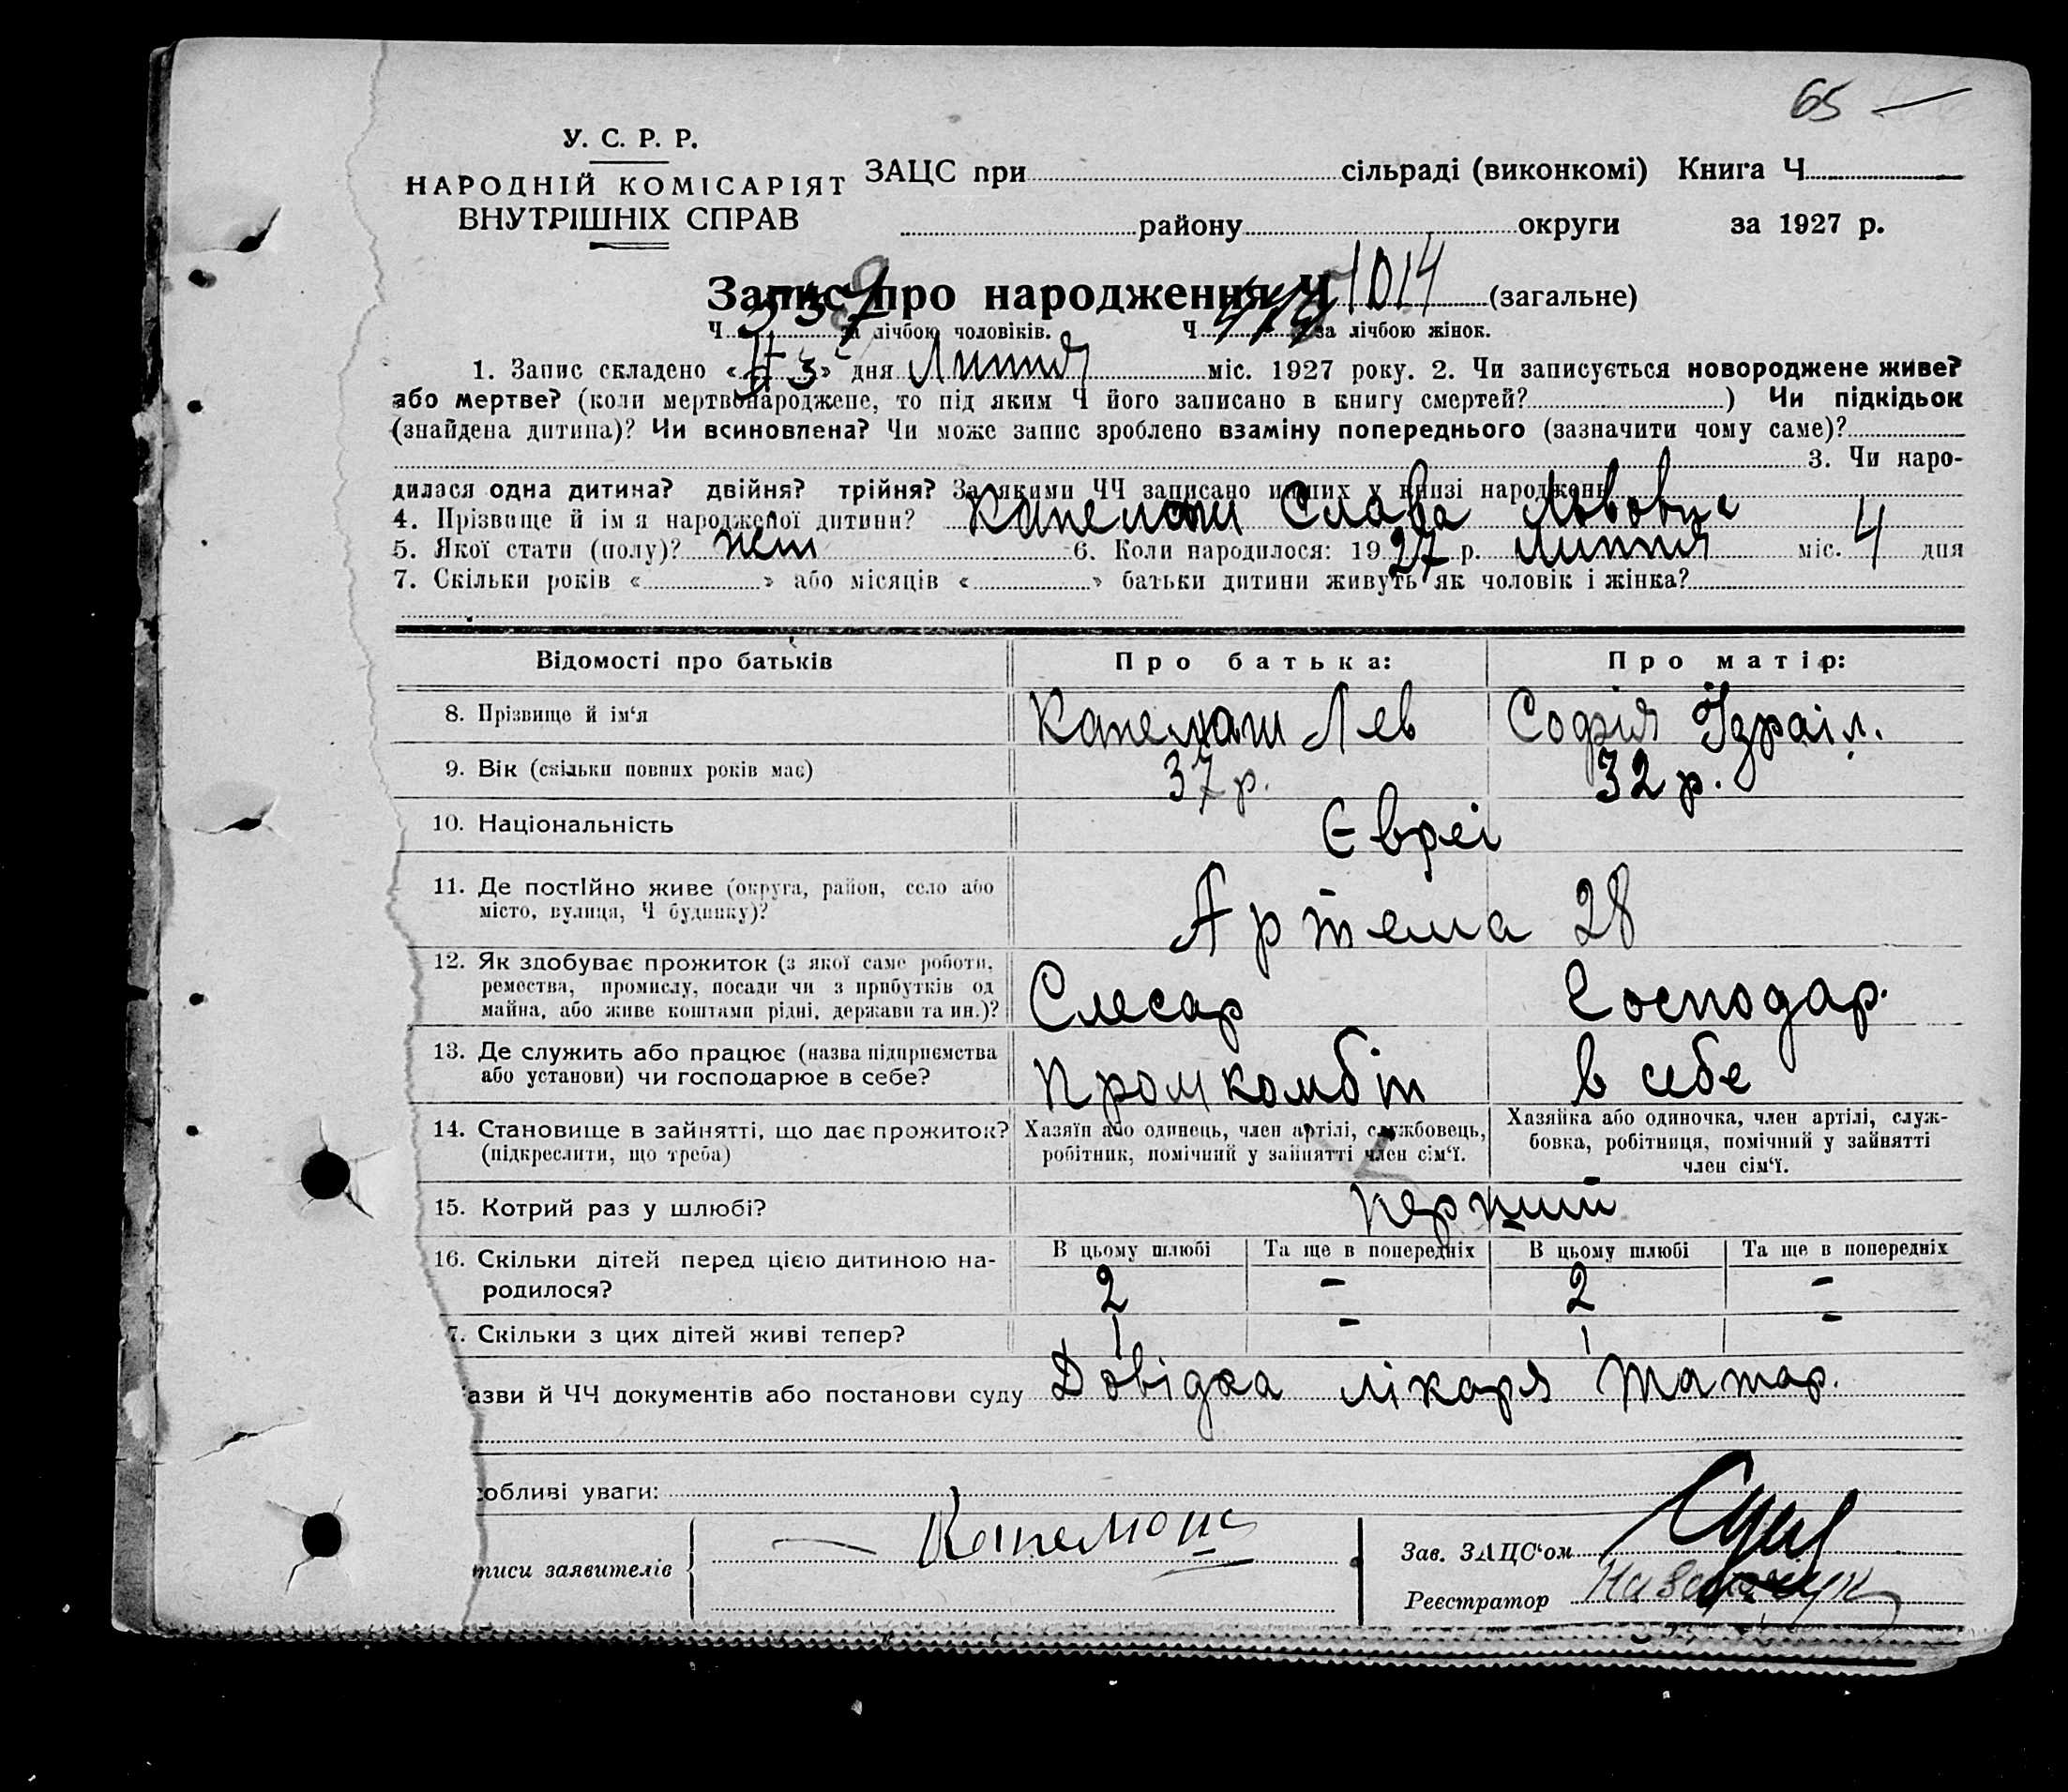 65 —
У. С. Р. Р.
НАРОДНІЙ КОМІСАРІЯТ
ВНУТРІШНІХ СПРАВ
ЗАЦС при сільраді (виконкомі) Книга Ч
району округи за 1927 р.
Запис про народження Ч 1014 (загальне)
Ч за лічбою чоловіків. Ч за лічбою жінок.
1. Запис складено « » дня Липня міс. 1927 року. 2. Чи записується новороджене живе?
або мертве? (коли мертвонароджене, то під яким Ч його записано в книгу смертей? ) Чи підкідьок
(знайдена дитина)? Чи всиновлена? Чи може запис зроблено взаміну попереднього (зазначити чому саме)?
3. Чи наро-
дилася одна дитина? двійня? трійня? За якими ЧЧ записано инших у книзі народжень
4. Прізвище й ім я народженої дитини? Слава Львовна
5. Якої стати (полу)? 6. Коли народилося: 1927 р. липня міс. 4 дня
7. Скільки років « » або місяців « » батьки дитини живуть як чоловік і жінка?
Відомості про батьків Про батька: Про матір:
8. Прізвище й ім‘я Лев Софія Ізраіл.
9. Вік (скільки повних років має) 37 р. 32 р.
10. Національність Євреї
11. Де постійно живе (округа, район, село або
місто, вулиця, Ч будинку)? Артема 28
12. Як здобуває прожиток (з якої саме роботи,
ремества, промислу, посади чи з прибутків од
майна, або живе коштами рідні, держави та ин.)? Слесар Господар.
13. Де служить або працює (назва підприємства
або установи) чи господарює в себе? Промкомбіт в себе
14. Становище в зайнятті, що дає прожиток?
(підкреслити, що треба)
Хазяїн або одинець, член артілі, службовець,
робітник, помічний у зайнятті член сім‘ї.
Хазяйка або одиночка, член артілі, служ-
бовка, робітниця, помічний у зайнятті
член сім‘ї.
15. Котрий раз у шлюбі? перший
16. Скільки дітей перед цією дитиною на-
родилося?
В цьому шлюбі Та ще в попередніх В цьому шлюбі Та ще в попередніх
2 – 2 –
7. Скільки з цих дітей живі тепер? 1 – 1 –
азви й ЧЧ документів або постанови суду Довідка лікаря Татар.
собливі уваги:
писи заявителів
Зав. ЗАЦС‘ом
Реєстратор